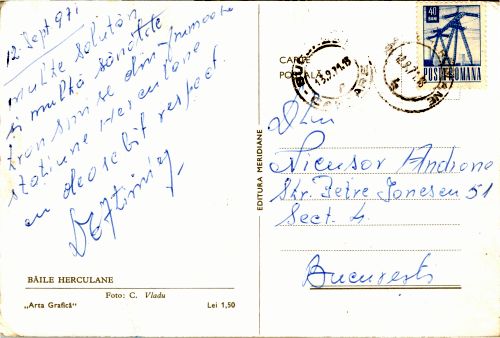 12. Sept 971
multe salutări
și multă sănătate
din frumoasa
stațiune Herculane
cu deosebit respect
BĂILE HERCULANE
Foto: C. Vladu
„Arta Grafică"
Lei 1,50
EDITURA MERIDIANE
CARTE
POȘTALĂ
40
BANI
POSTA ROMANA
Dlui
Nicușor Androne
Str. Petre Ionescu 51
Sect. 4.
București